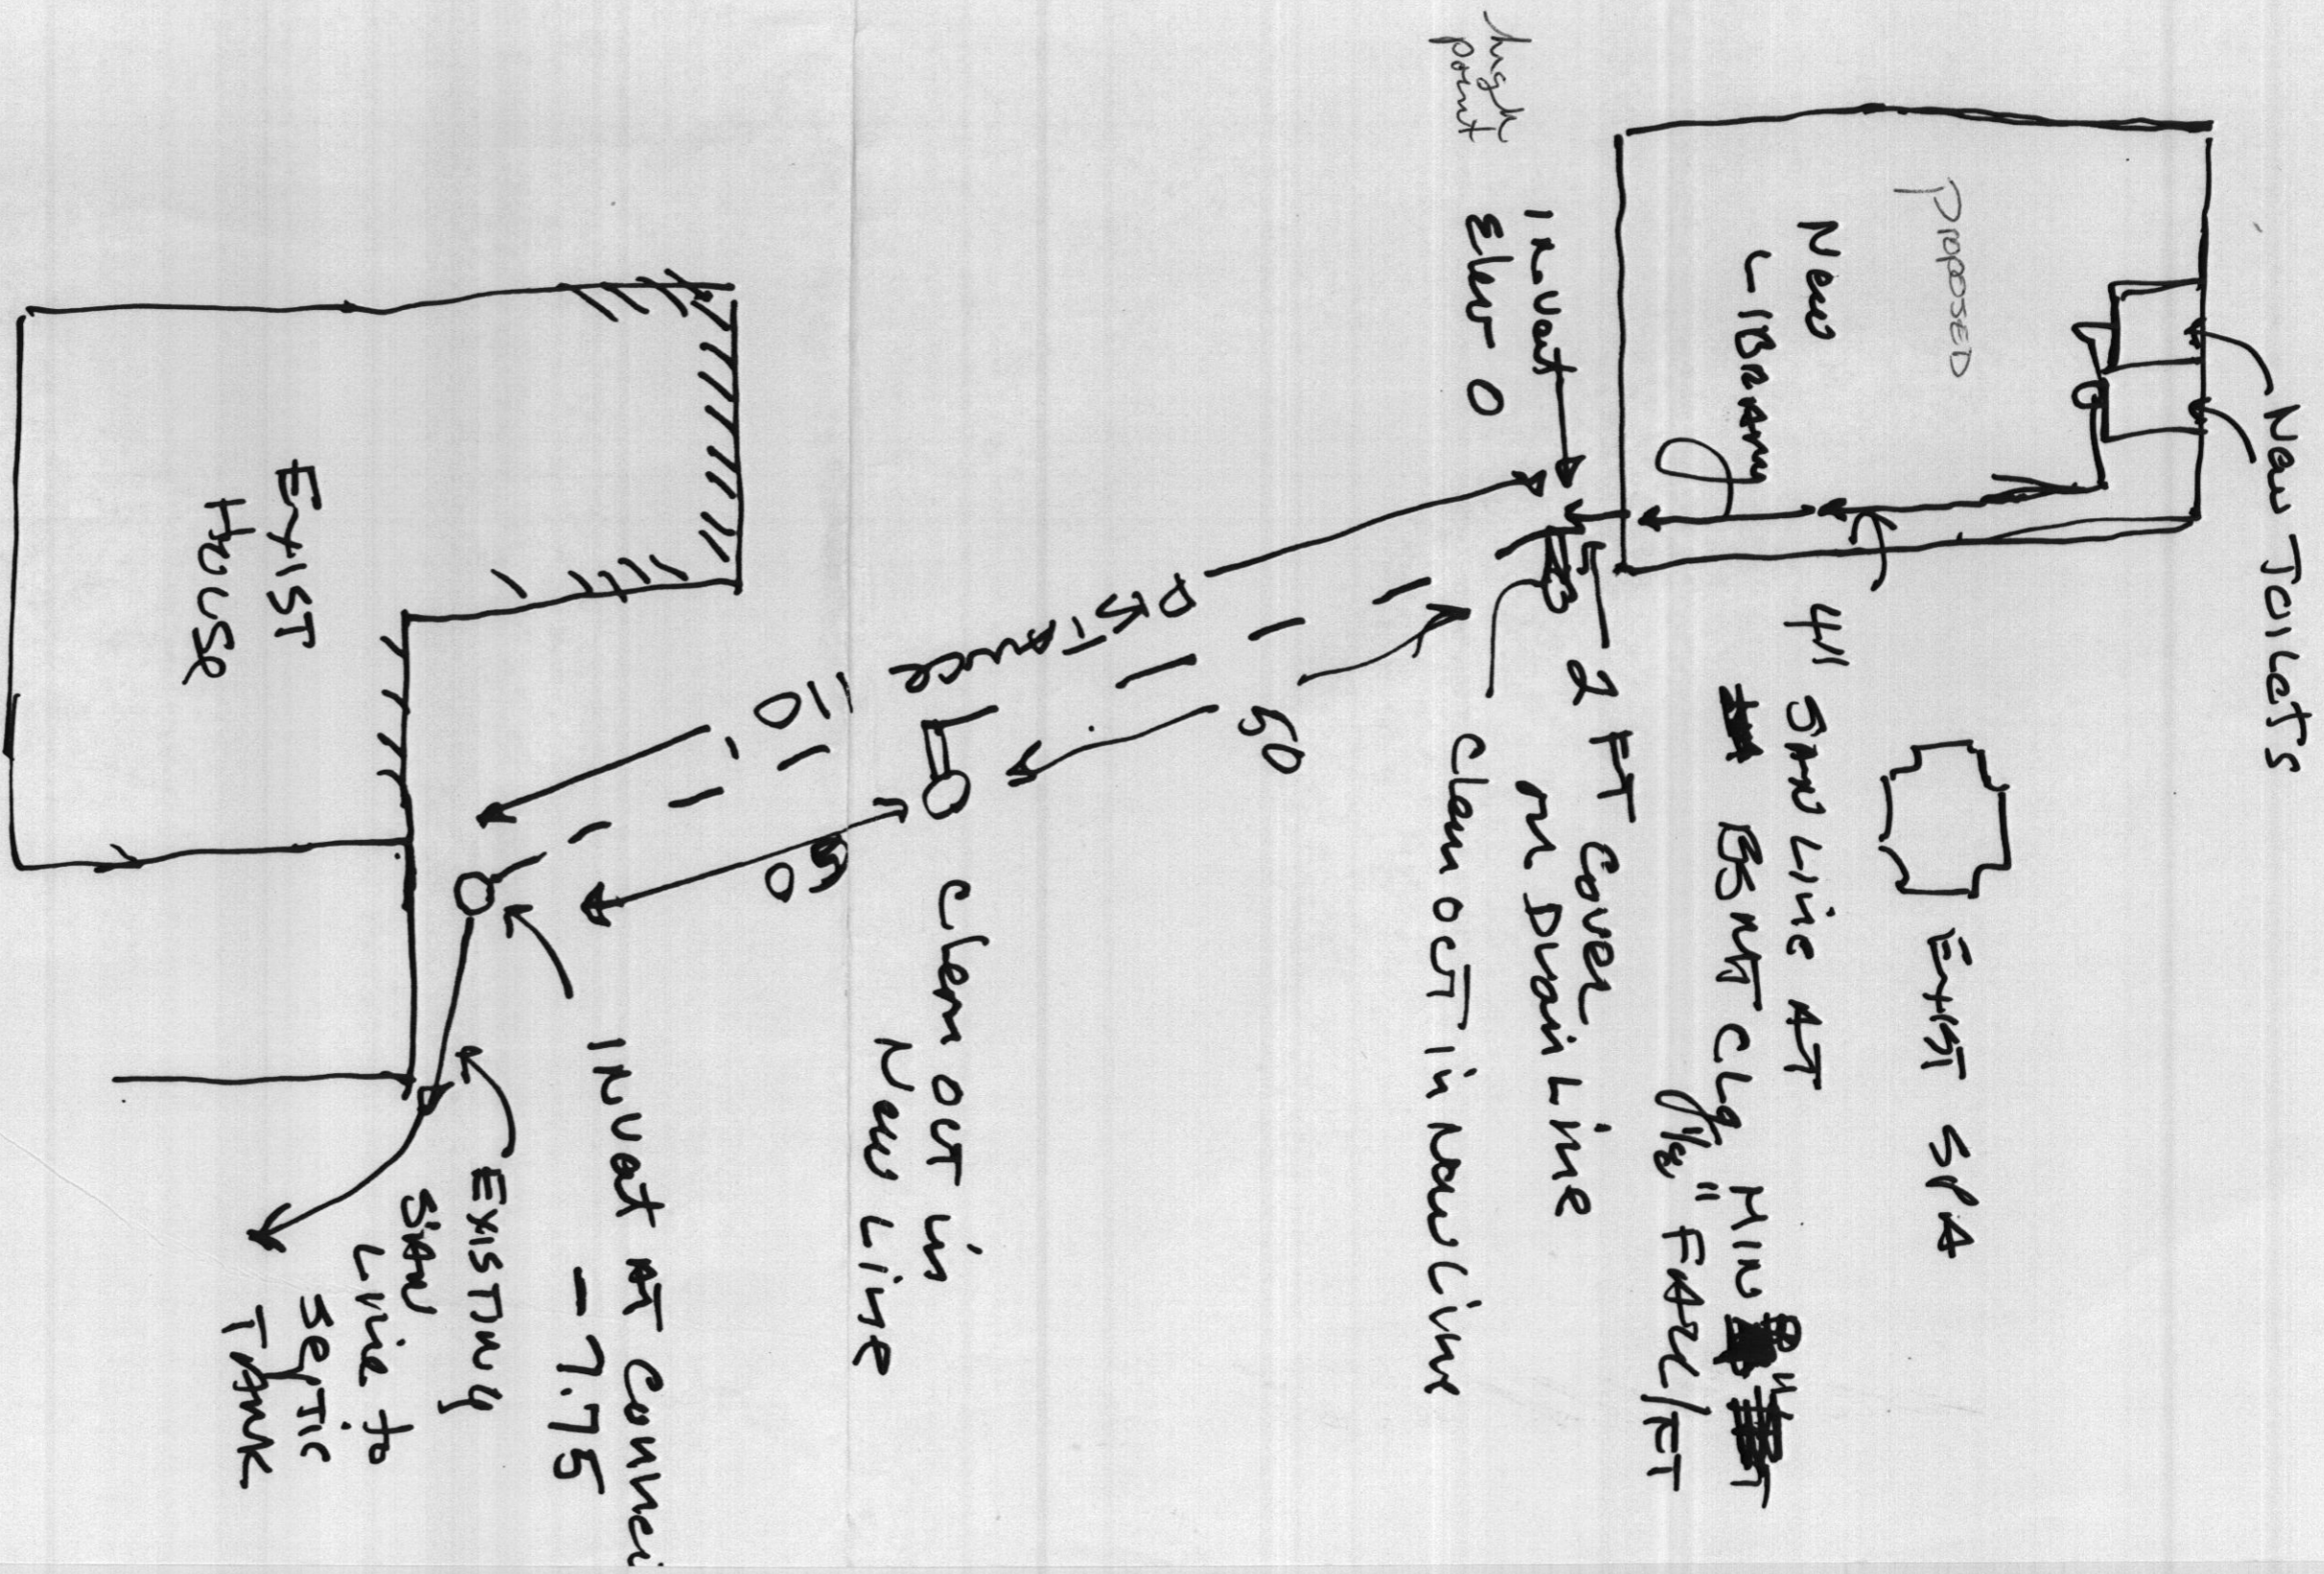 New Toilets
EXIST SPA
PROPOSED
New
LIBRARY
4" SAN Line AT
BSMT CLg MIN 8"
1/8" FALL/FT
2 FT Cover
on Drain Line
Clean out in New Line
high
point
Invert
Elev 0
50
DISTANCE
110
50
Clean out in
New Line
INVert AT Connec
-7.75
EXISTING
SAN
Line to
SepTIC
TANK
EXIST
House